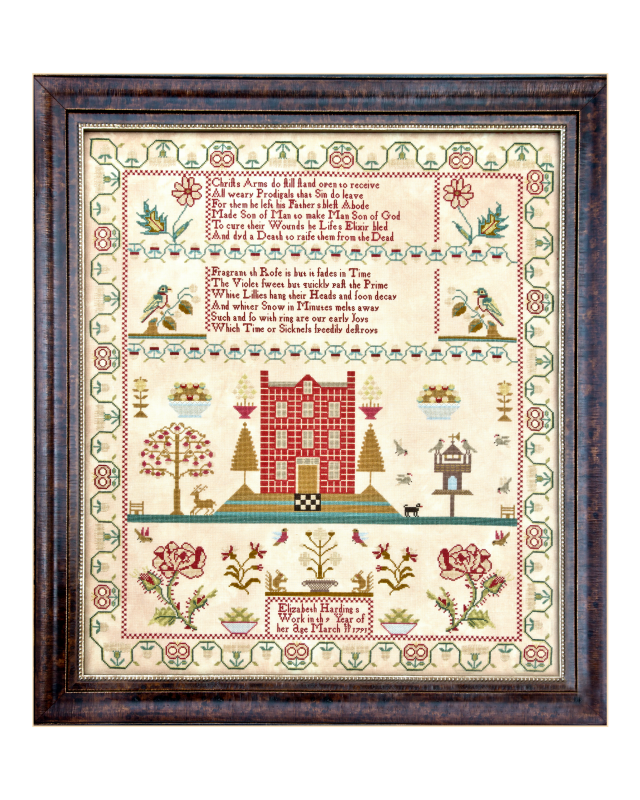 Chriſts Arms do ſtill ſtand open to receive
All weary Prodigals that Sin do leave
For them he left his Father s bleſt Abode
Made Son of Man to make Man Son of God
To cure their Wounds he Life s Elixir bled
And dyd a Death to raiſe them from the Dead
Fragrant th Roſe is but it fades in Time
The Violet ſweet but quickly paſt the Prime
White Lillies hang their Heads and ſoon decay
And whiter Snow in Minutes melts away
Such and ſo with ring are our early Joys
Which Time or Sickneſs ſpeedily deſtroys
Elizabeth Harding s
Work in th 9 Year of
her age March 11 1791